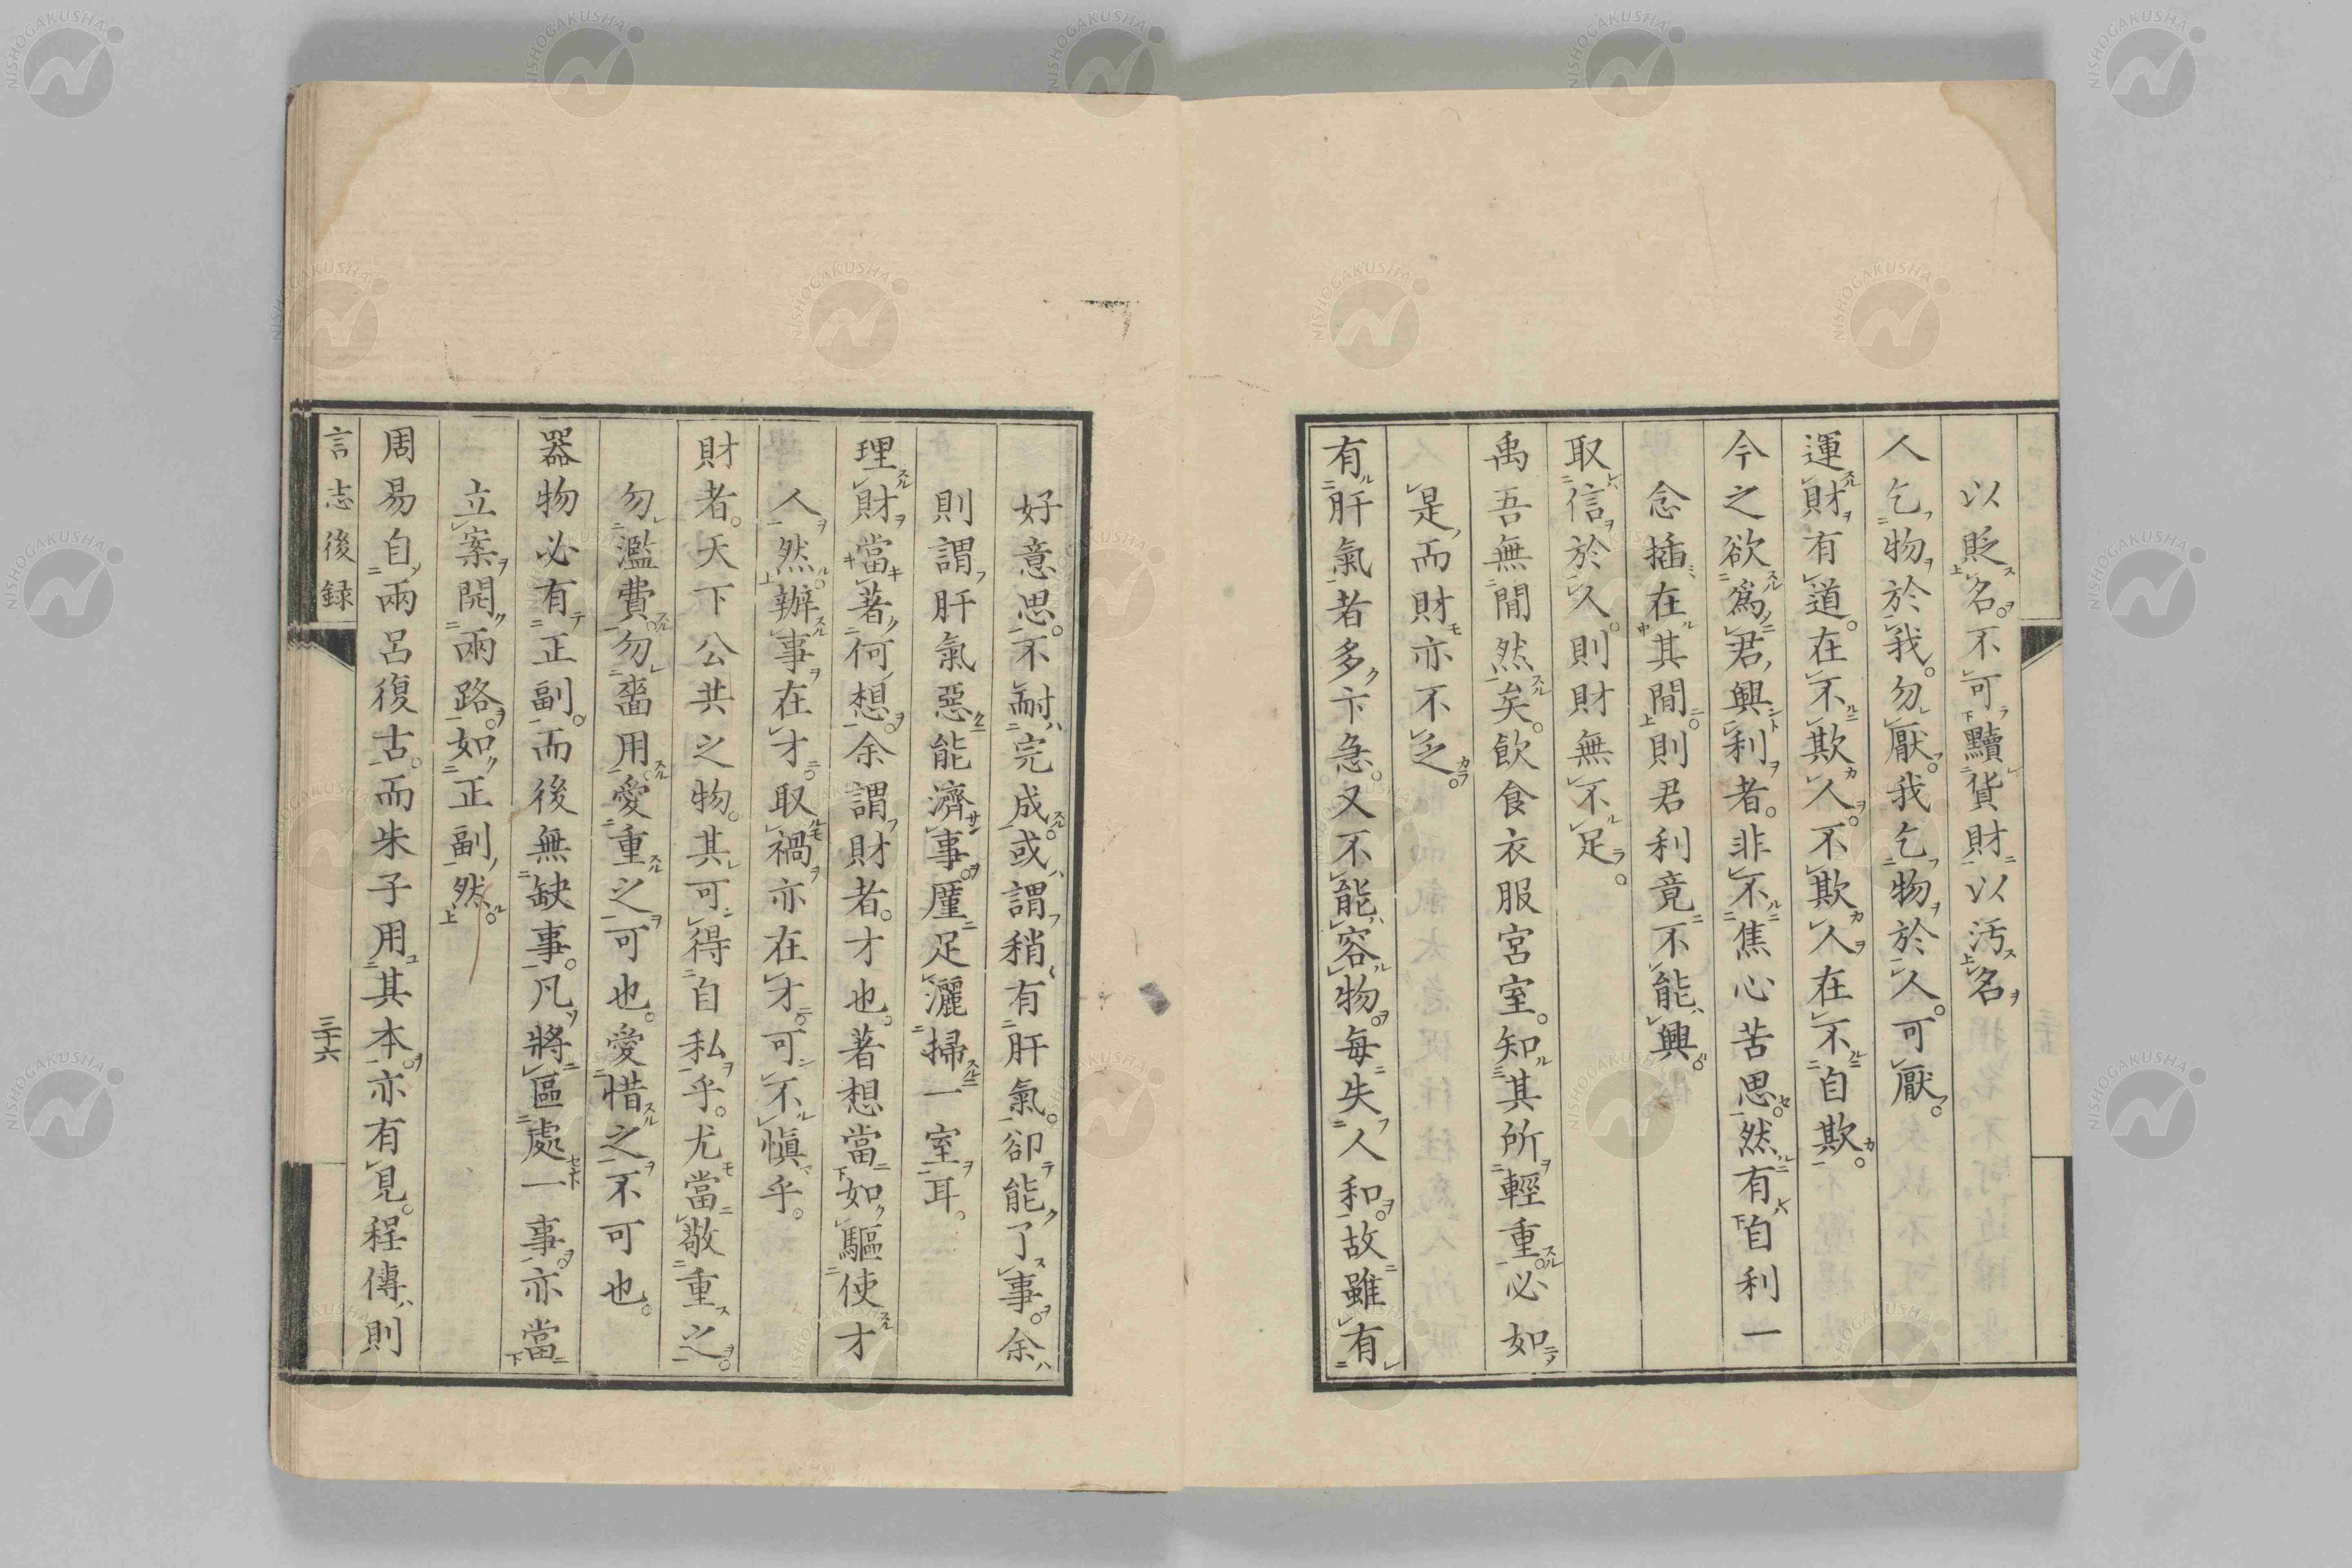 以貶名。不可黷貨財以汚名
人乞物於我。勿厭。我乞物於人。可厭。
運財有道。在不欺人。不欺人在不自欺。
今之欲爲君興利者。非不焦心苦思。然有自利一
念插在其間。則君利竟不能興。
取信於人。則財無不足。
禹吾無間然矣。飮食衣服宮室。知其所輕重。必如
是而財亦不乏。
有肝氣者多卞急。又不能容物。每失人和。故雖有
好意思。不耐完成。或謂稍有肝氣。卻能了事。余
則謂肝氣惡能濟事。厪足灑掃一室耳。
理財當著何想。余謂財者。才也。著想當如驅使才
人然。辦事在才。取禍亦在才。可不愼乎。
財者。天下公共之物。其可得自私乎。尤當敬重之。
勿濫費。勿嗇用。愛重之可也。愛惜之不可也。
器物必有正副。而後無缺事。凡將區處一事。亦當
立案開兩路。如正副然。
周易自兩呂復古。而朱子用其本。亦有見。程傳則
言志後録
三十六
NISHOGAKUSHA